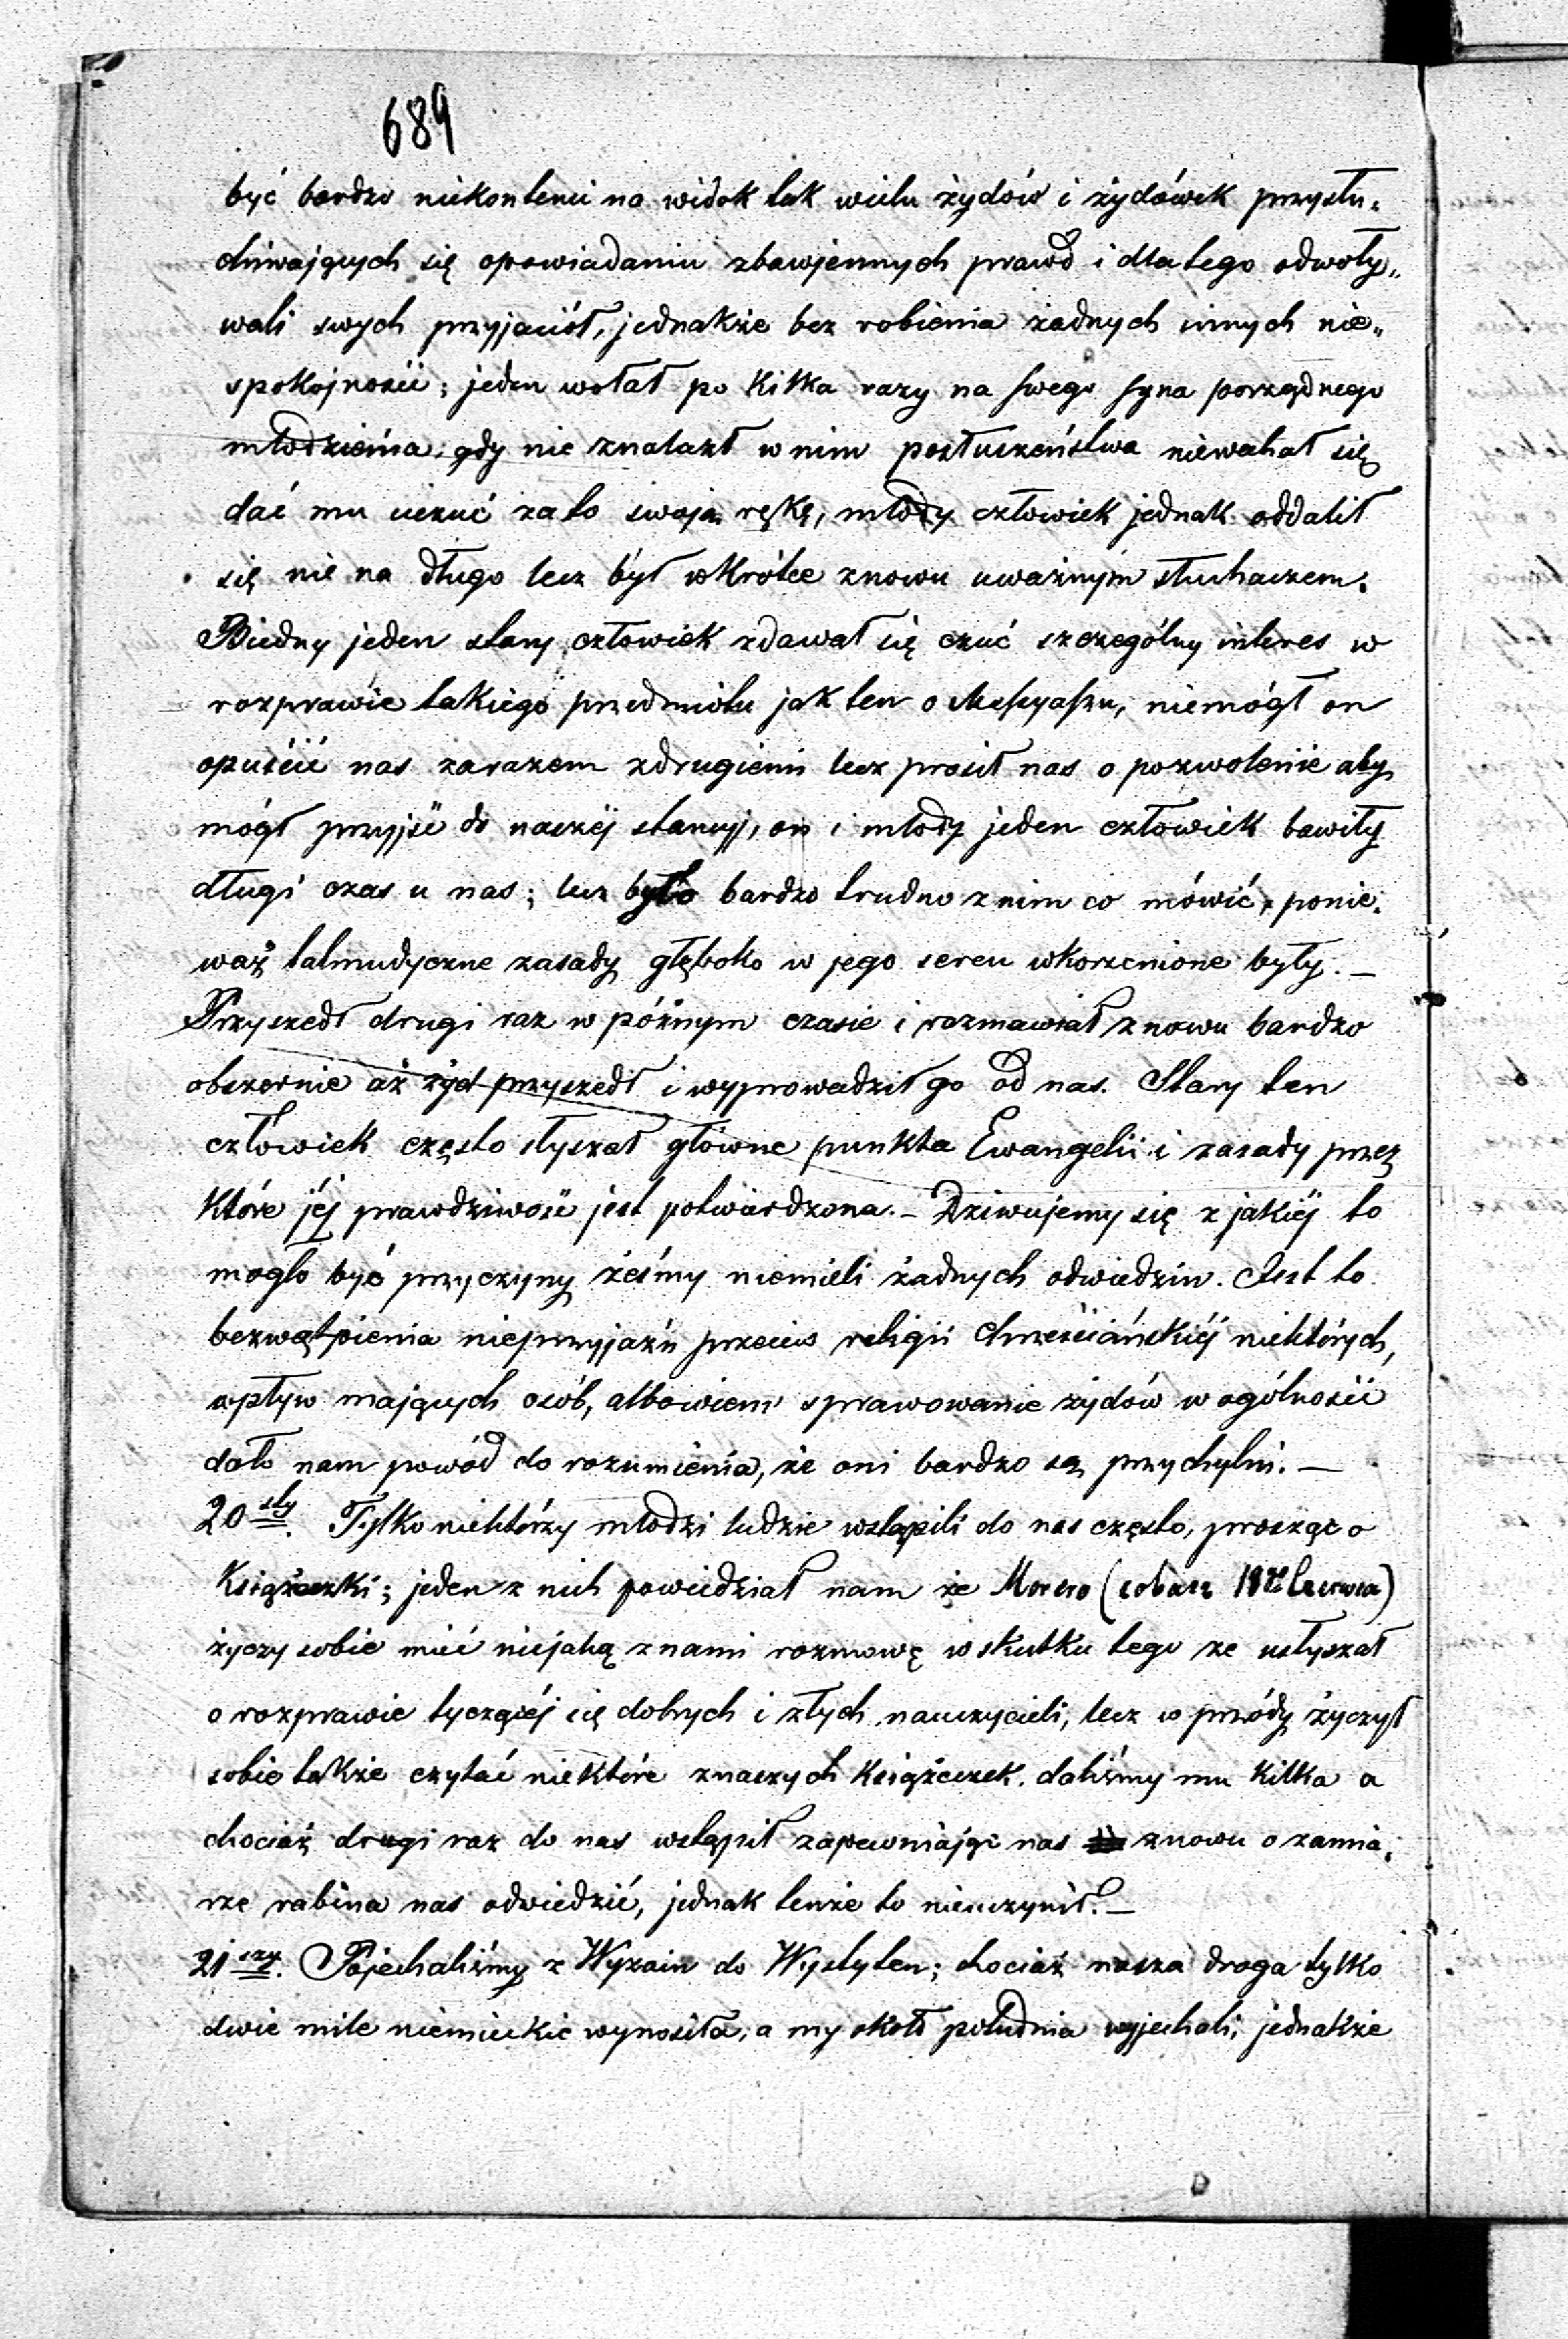 689
być bardzo niekontenci na widok tak wielu żydów i żydówek przysłu„
chiwających się opowiadaniu zbawjennych prawd i dla tego odwoły„
wali swych przyjaciół, jednakże bez robienia żadnych innych nie„
spokojności; jeden wołał po kilka razy na swego syna porządnego
młodzieńca; gdy nie znalazł w nim posłuszeństwa niewahał się
dać mu uczuć za to swoją rękę, młody człowiek jednak oddalił
się nie na długo lecz był wkrótce znowu uważnym słuchaczem.
Biedny jeden stary człowiek zdawał się czuć szczególny interes w
rozprawie takiego przedmiotu jak ten o Messyaszu, niemógł on
opuścić nas zarazem zdrugiemi lecz prosił nas o pozwolenie aby
mógł przyjść do naszéj stancyj, on i młody jeden człowiek bawiły
długi czas u nas; lecz było bardzo trudno z nim co mówić, ponie„
waż talmudyczne zasady głęboko w jego sercu wkorzenione były. —
Przyszedł drugi raz w póżnym czasie i rozmawiał znowu bardzo
obszernie aż żyd przyszedł i wyprowadził go od nas. Stary ten
człowiek często słyszał główne punkta Ewangelii i zasady przez
które jéj prawdziwość jest potwierdzona. – Dziwujemy się z jakiéj to
mogło być przyczyny żeśmy niemieli żadnych odwiedzin. Jest to
bezwątpienia nieprzyjaźń przeciw religii chrześciańskiéj niektórych,
wpływ mających osób, albowiem sprawowanie żydów w ogólności
dało nam powód do rozumienia, że oni bardzo są przychylni. —
20sty. Tylko niektórzy młodzi ludzie wstąpili do nas często, prosząc o
Książeczki; jeden z nich powiedział nam że Morero (zobacz 18go Czerwca)
życzy sobie mieć niejaką z nami rozmowę w skutku tego że usłyszał
o rozprawie tyczącéj się dobrych i złych nauczycieli, lecz w przódy życzył
sobie także czytać niektóre znaszych Książeczek. daliśmy mu kilka a
chociaż drugi raz do nas wstąpił zapewniając nas znowu o zamia„
rze rabina nas odwiedzić, jednak tenże to nieuczynił. —
21szy. Pojechaliśmy z Wyzain do Wystyten; chociaż nasza droga tylko
dwie mile niemieckie wynosiła, a my około południa wyjechali, jednakże